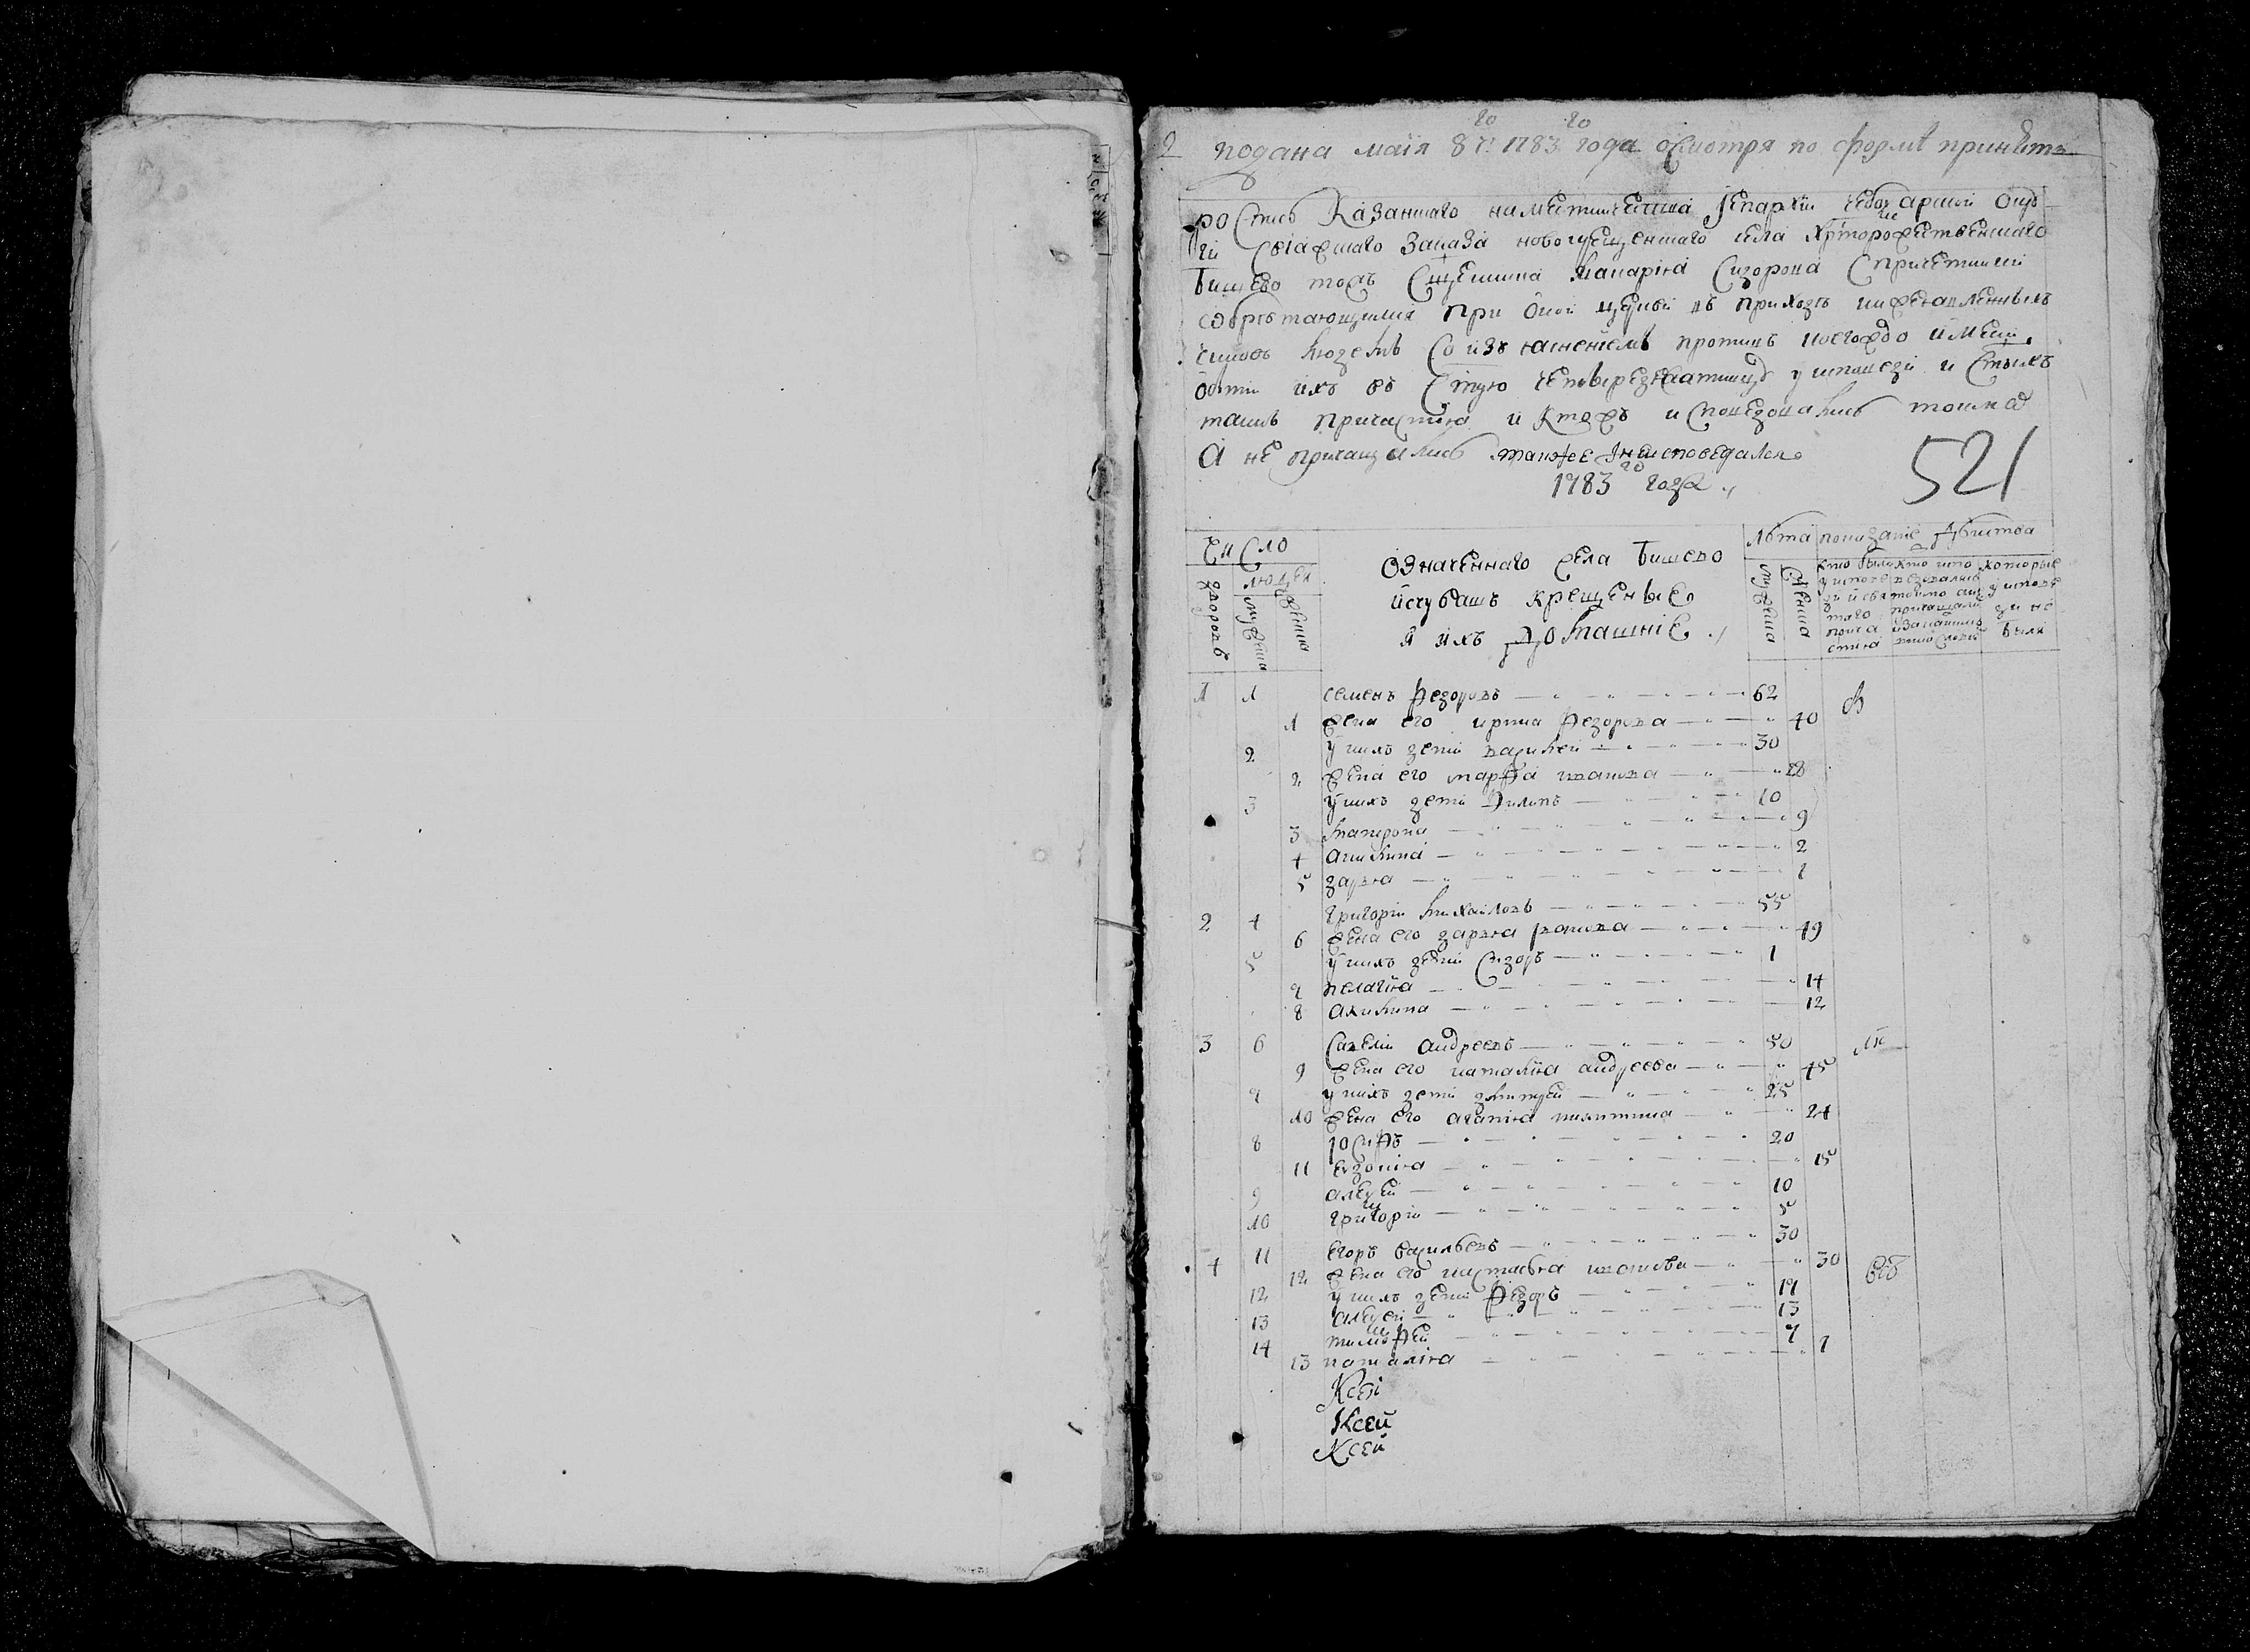 2 подана маїя 8г: 1783 го года осмотря по форме принять
роспись Казанскаго наместничества Іепархїи чебоксарской окру
ги свіажскаго заказа новокрещенскаго села Хрсторожественскаго
Бишево тожъ Сщенника Макаріа Сидорова Спричетники
обретающимся при оной церкви въ приходе нижеявленныхъ
чиновъ людемъ Со изъявленіемъ противъ коегождо имени
бытіи ихъ въ Стую четыредесятницу у исповеди и Стыхъ
таинъ причастиа и Ктожъ исповедовались токмо
А не причащались также Інеисповедался
1783 го года
521
Число
дворовъ
людей
мужеска
женска
Означеннаго Села Бишево
исчувашъ крещеные
И ихъ домашніе
Лета
мужеска
женска
показаніе действа
кто были
у исповеди и святаго причастиа
кто исповедались токмо а не причащались и за какимъ винословіем
которые у исповеди не были
1 1 семенъ Федоровъ 62
1 жена его ирина Федорова 40
2 у нихъ дети василей 30
2 жена его марфа иванова 28
3 у нихъ дети Филипъ 10
3 матрона 9
4 акилина 2
5 дарья 1
2 4 григорїи михаиловъ 55
6 жена его дарья иванова 49
5 у нихъ дети Сидоръ 1
7 пелагїя 14
8 акилина 12
3 6 Савелїи андреевъ 50
9 жена его наталїа андреева 45
7 у нихъ дети дмитрїи 25
10 жена его агапіа никитина 24
8 іосифъ 20
11 евдокїа 15
9 алексеи 10
10 григорїи 5
4 11 егоръ васильевъ 30
12 жена его настасья иванова 30
12 у нихъ дети Федоръ 17
13 алексеи 13
14 тимофеи 7
13 наталіа 1
Ксеі
Ксеи
Ксеи